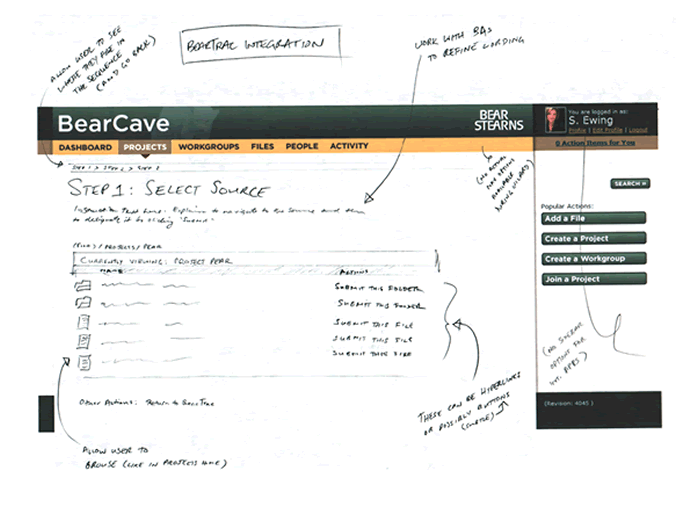 BEARTRAC INTEGRATION
ALLOW USER TO SEE
WHERE THEY ARE IN
THE SEQUENCE
(AND GO BACK)
WORK WITH BAs
TO REFINE WORDING
BearCave
BEAR
STEARNS
You are logged in as:
S. Ewing
Profile | Edit Profile | Logout
DASHBOARD PROJECTS WORKGROUPS FILES PEOPLE ACTIVITY
0 Action Items for You
STEP 1 > STEP 2 > STEP 3
STEP 1: SELECT SOURCE
Instruction text here: Explain to navigate to the source and then
to designate it by clicking "Submit"
(NO ACTUAL
OPTIONS
AVAILABLE
DURING WIZARD)
SEARCH »
Popular Actions:
Add a File
Create a Project
Create a Workgroup
Join a Project
/ PROJECTS / PEAR
CURRENTLY VIEWING: PROJECT PEAR
NAME ACTIONS
SUBMIT THIS FOLDER
SUBMIT THIS FOLDER
SUBMIT THIS FILE
SUBMIT THIS FILE
SUBMIT THIS FILE
(NO
OPTION FOR
Other Actions: Return to BearTrac
THESE CAN BE HYPERLINKS
OR POSSIBLY BUTTONS
(SUBTLE)
(Revision: 4045 )
ALLOW USER TO
BROWSE (LIKE IN PROJECTS HOME)